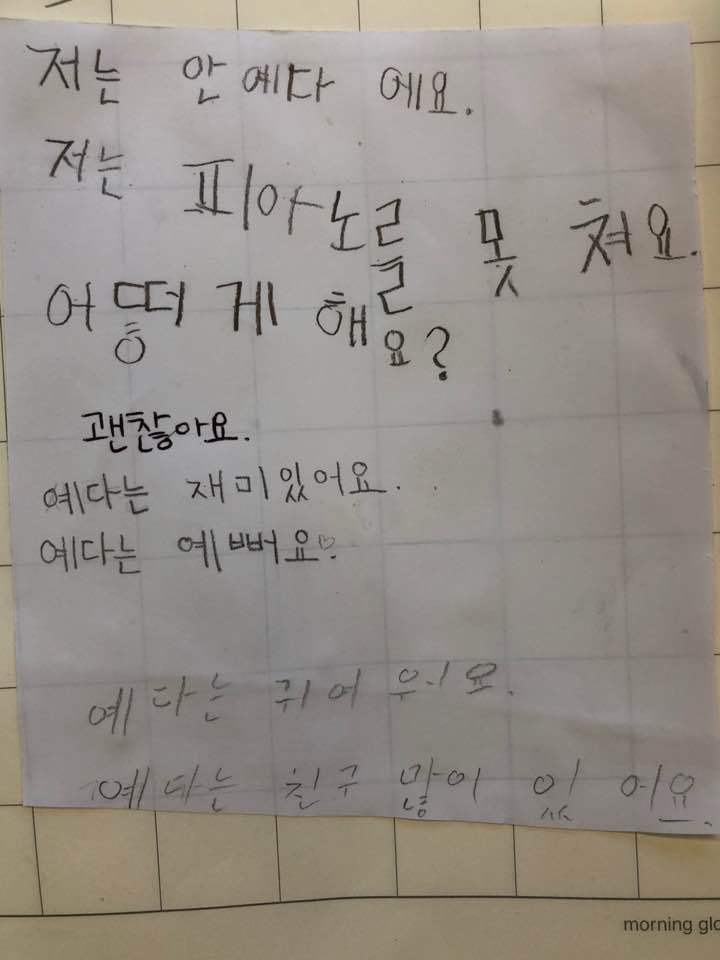 저는 안예다 에요.
저는 피아노를 못 쳐요.
어떻게 해요?
괜찮아요.
예다는 재미있어요.
예다는 예뻐요♡
예다는 귀여워요.
예다는 친구 많이 있어요.
morning glo